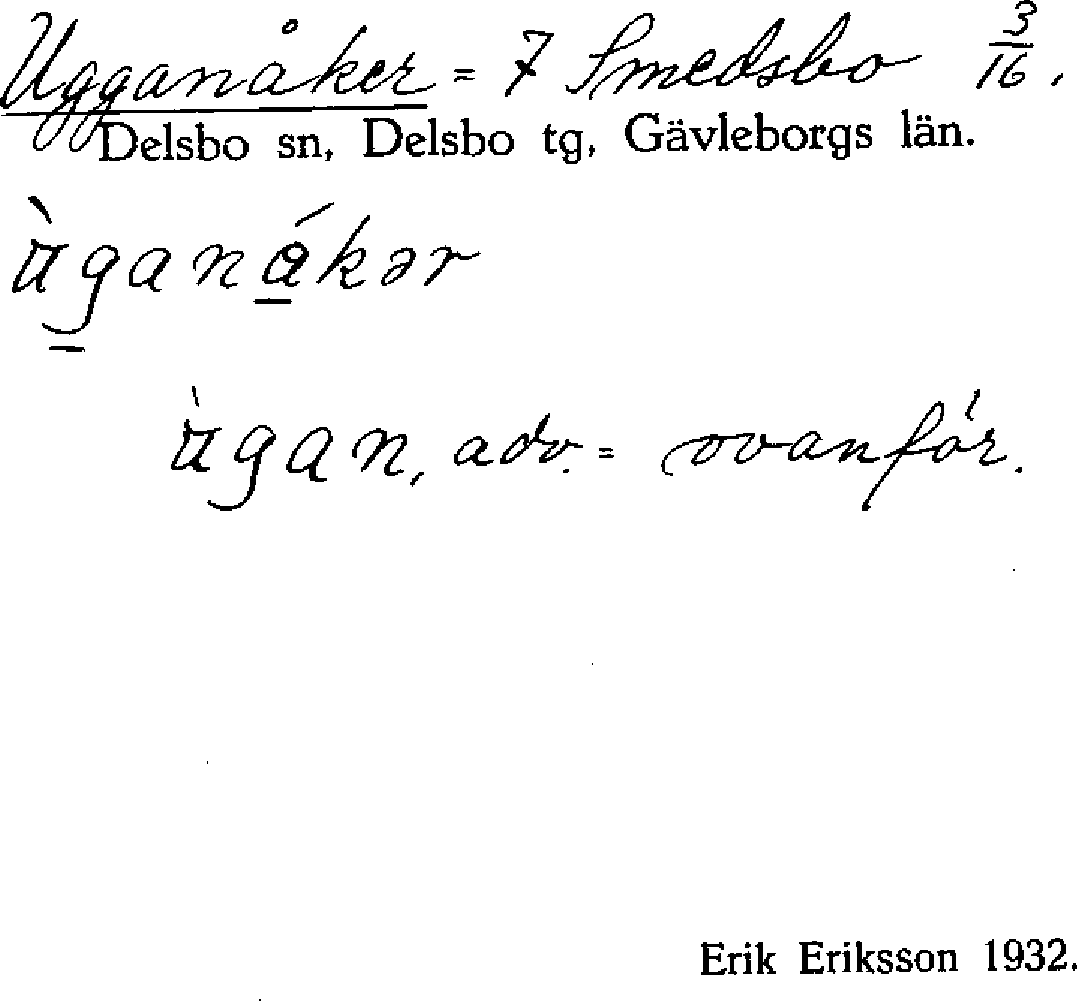 Ugganåker = 7 Smedsbo 3/16.
Delsbo sn, Delsbo tg, Gävleborgs län.
ùganákər
ùgan, adv. = ovanför.
Erik Eriksson 1932.